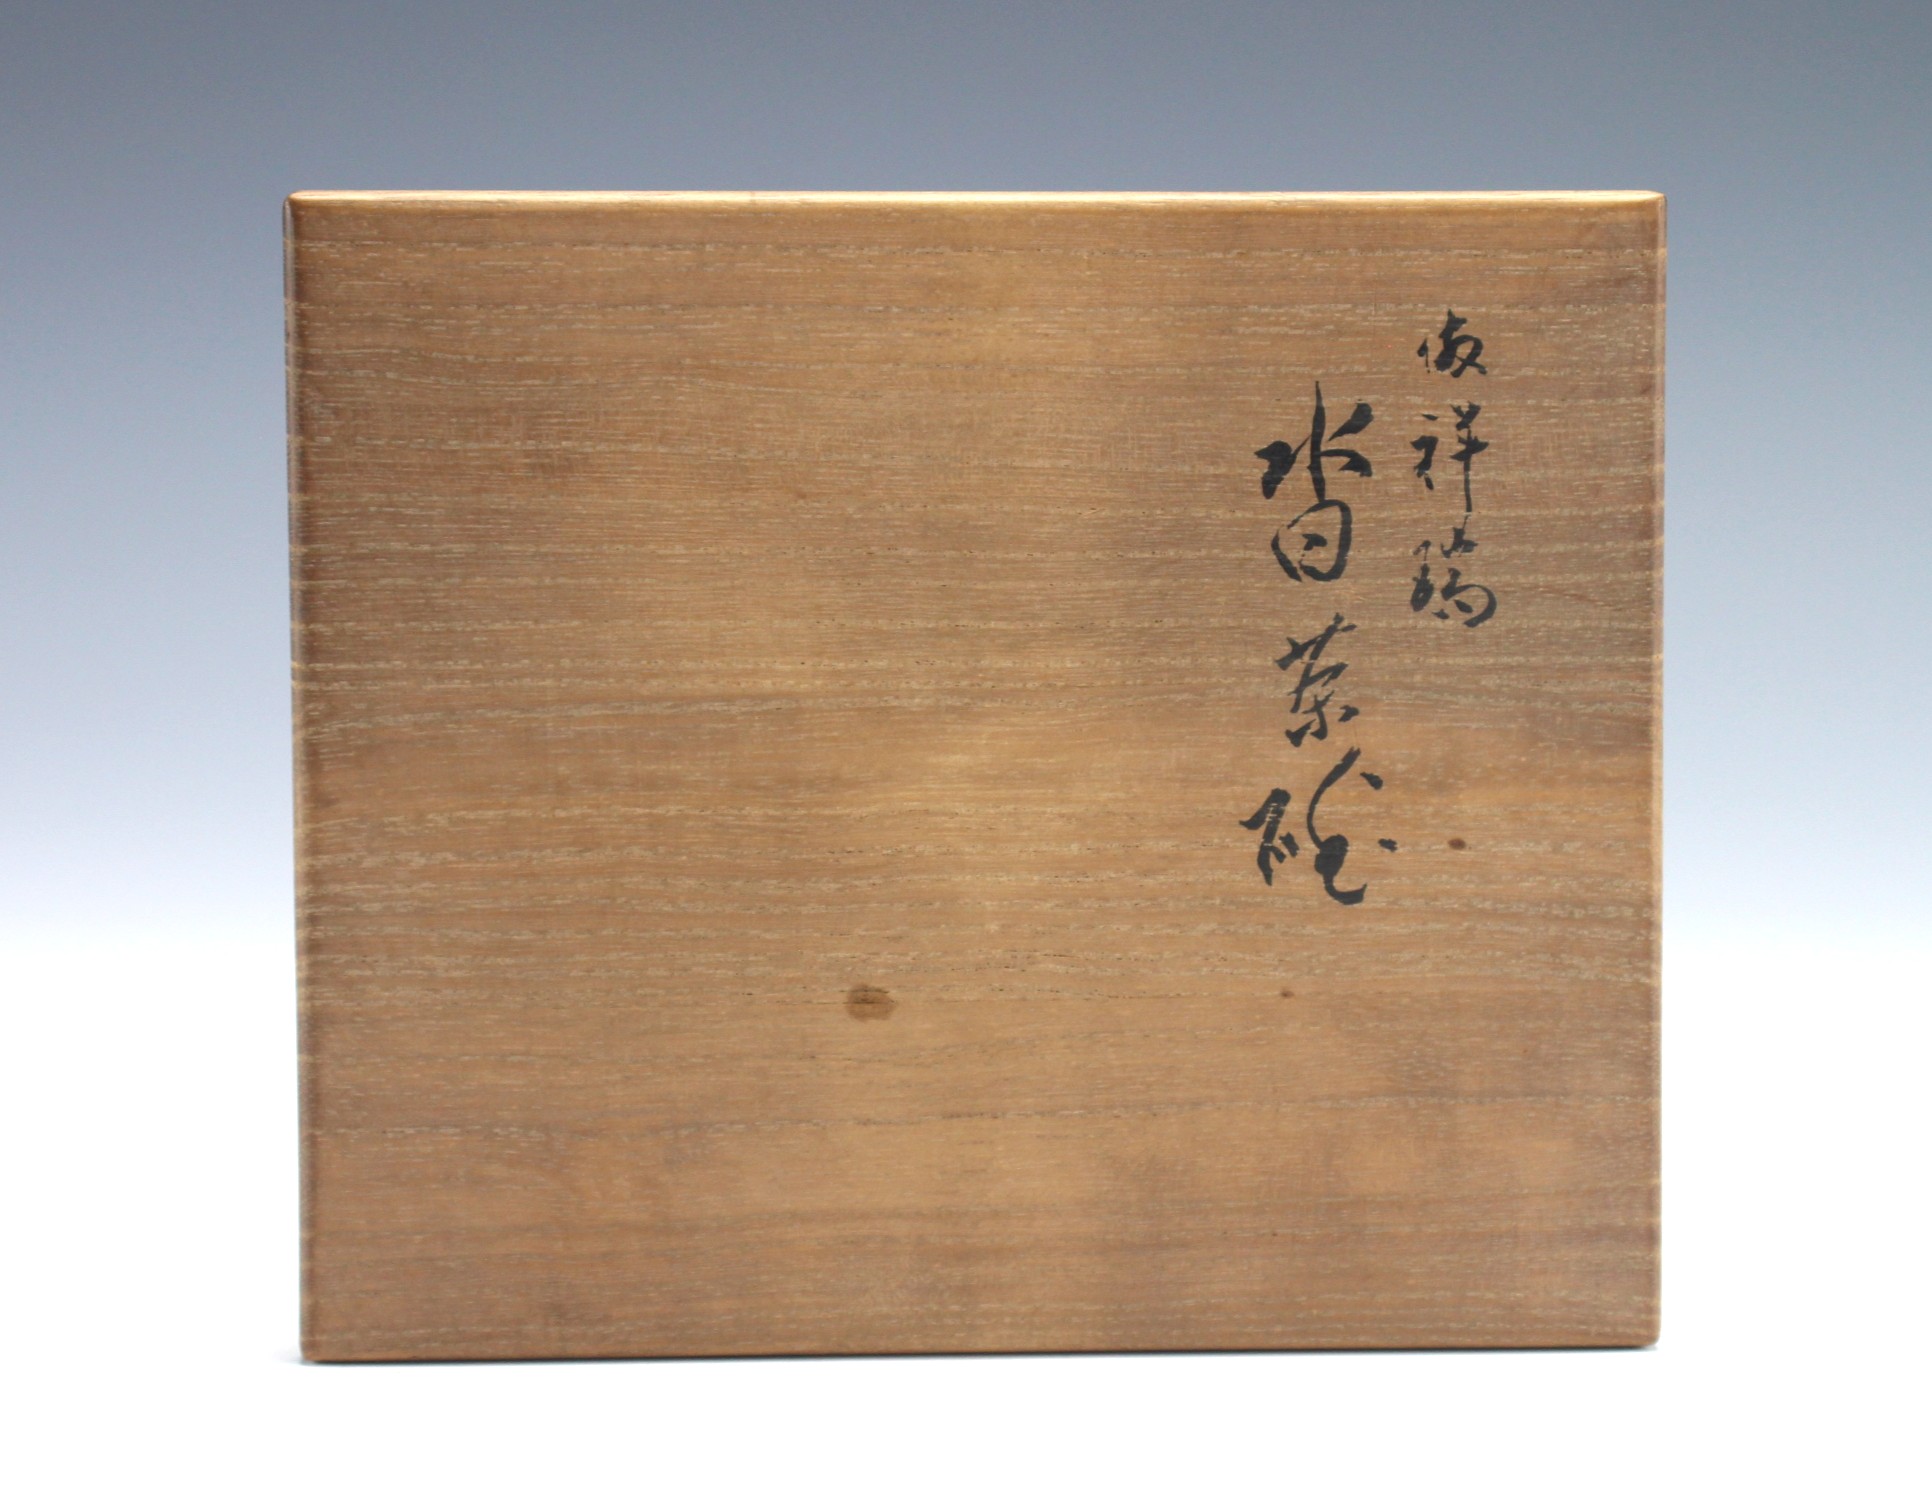 倣祥瑞
沓茶碗